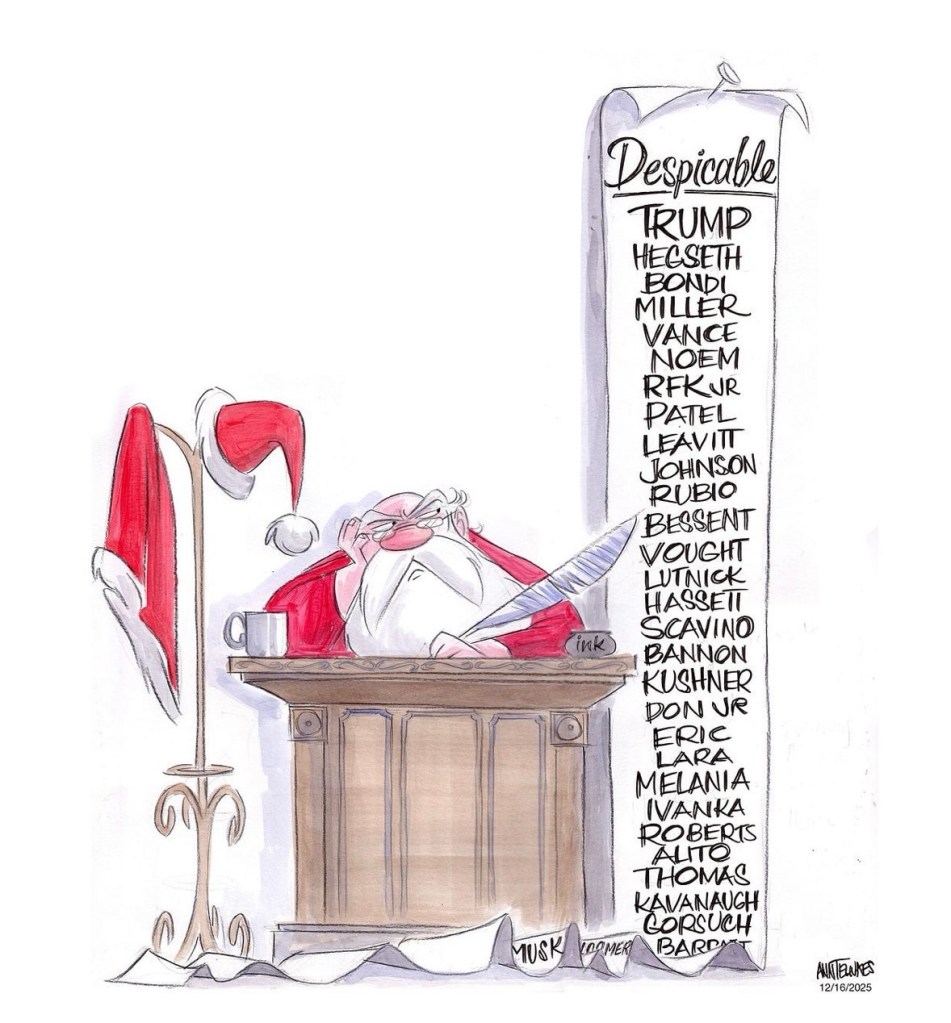 Despicable
TRUMP
HEGSETH
BONDI
MILLER
VANCE
NOEM
RFK JR
PATEL
LEAVITT
JOHNSON
RUBIO
BESSENT
VOUGHT
LUTNICK
HASSETT
SCAVINO
BANNON
KUSHNER
DON JR
ERIC
LARA
MELANIA
IVANKA
ROBERTS
ALITO
THOMAS
KAVANAUGH
GORSUCH
BARRETT
MUSK
ink
12/16/2025